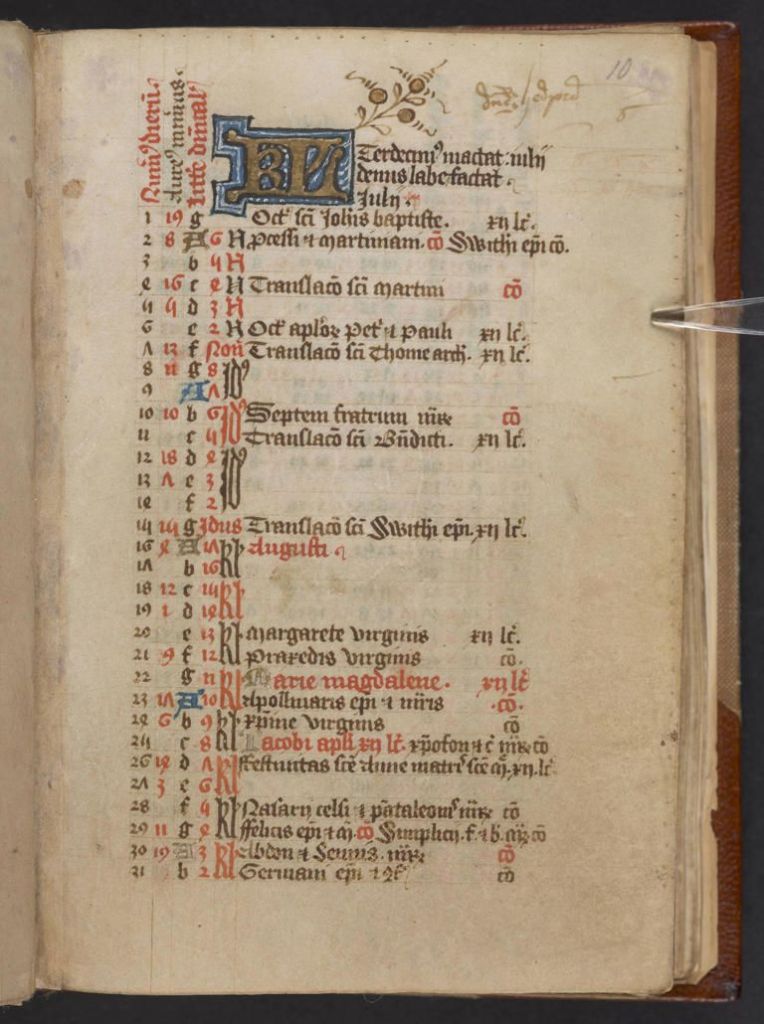 10
Numꝰ dierū.
Aureꝰ nūerus.
Lrē dn̄ical
KL Terdecimꝰ mactat iulij
denus labefactat.
Julij.
1 19 g Oct̄ sc̄i Joh̄is baptiste. xij lc̄.
2 8 A 6 N Pcessi ⁊ martiniani. cō Swithi ep̄i cō.
3 b 4 N
4 16 c 4 N Translacō sc̄i martini cō
5 5 d 3 N
6 e 2 N Oct̄ aploꝝ Pet̄ ⁊ Pauli xij lc̄.
7 13 f Non̄ Translacō sc̄i Thome arch̄. xij lc̄.
8 ii g 8 Id
9 A 7
10 10 b 6 Id Septem fratrum mr̄ꝝ cō
11 c 5 Translacō sc̄i Bn̄dicti. xij lc̄.
12 18 d 4 Id
13 7 e 3
14 f 2
15 15 g Idus Translacō sc̄i Swithi ep̄i. xij lc̄.
16 4 A 17 kl Augusti
17 b 16
18 12 c 15 kl
19 1 d 14
20 e 13 kl Margarete virginis xij lc̄.
21 9 f 12 Praxedis virginis cō.
22 g 11 kl Marie magdalene. xij lc̄
23 17 A 10 Apollinaris ep̄i ⁊ mr̄is .cō.
24 6 b 9 kl Xp̄ine virginis cō
25 c 8 Iacobi apl̄i xij lc̄. xp̄ofori ⁊ c̄ mr̄ꝝ cō
26 14 d 7 kl ffestiuitas sc̄e Anne matr̄ sc̄e m̄. xij lc̄.
27 3 e 6
28 f 5 kl Nasarij celsi ⁊ pātaleonis mr̄ꝝ cō
29 11 g 4 ffelicis ep̄i ⁊ m̄. cō Simplicij. f. ⁊ b. mr̄ꝝ cō
30 19 A 3 kl Abdon ⁊ Sennis. mr̄ꝝ cō
31 b 2 Germani ep̄i ⁊ ꝯf̄ cō